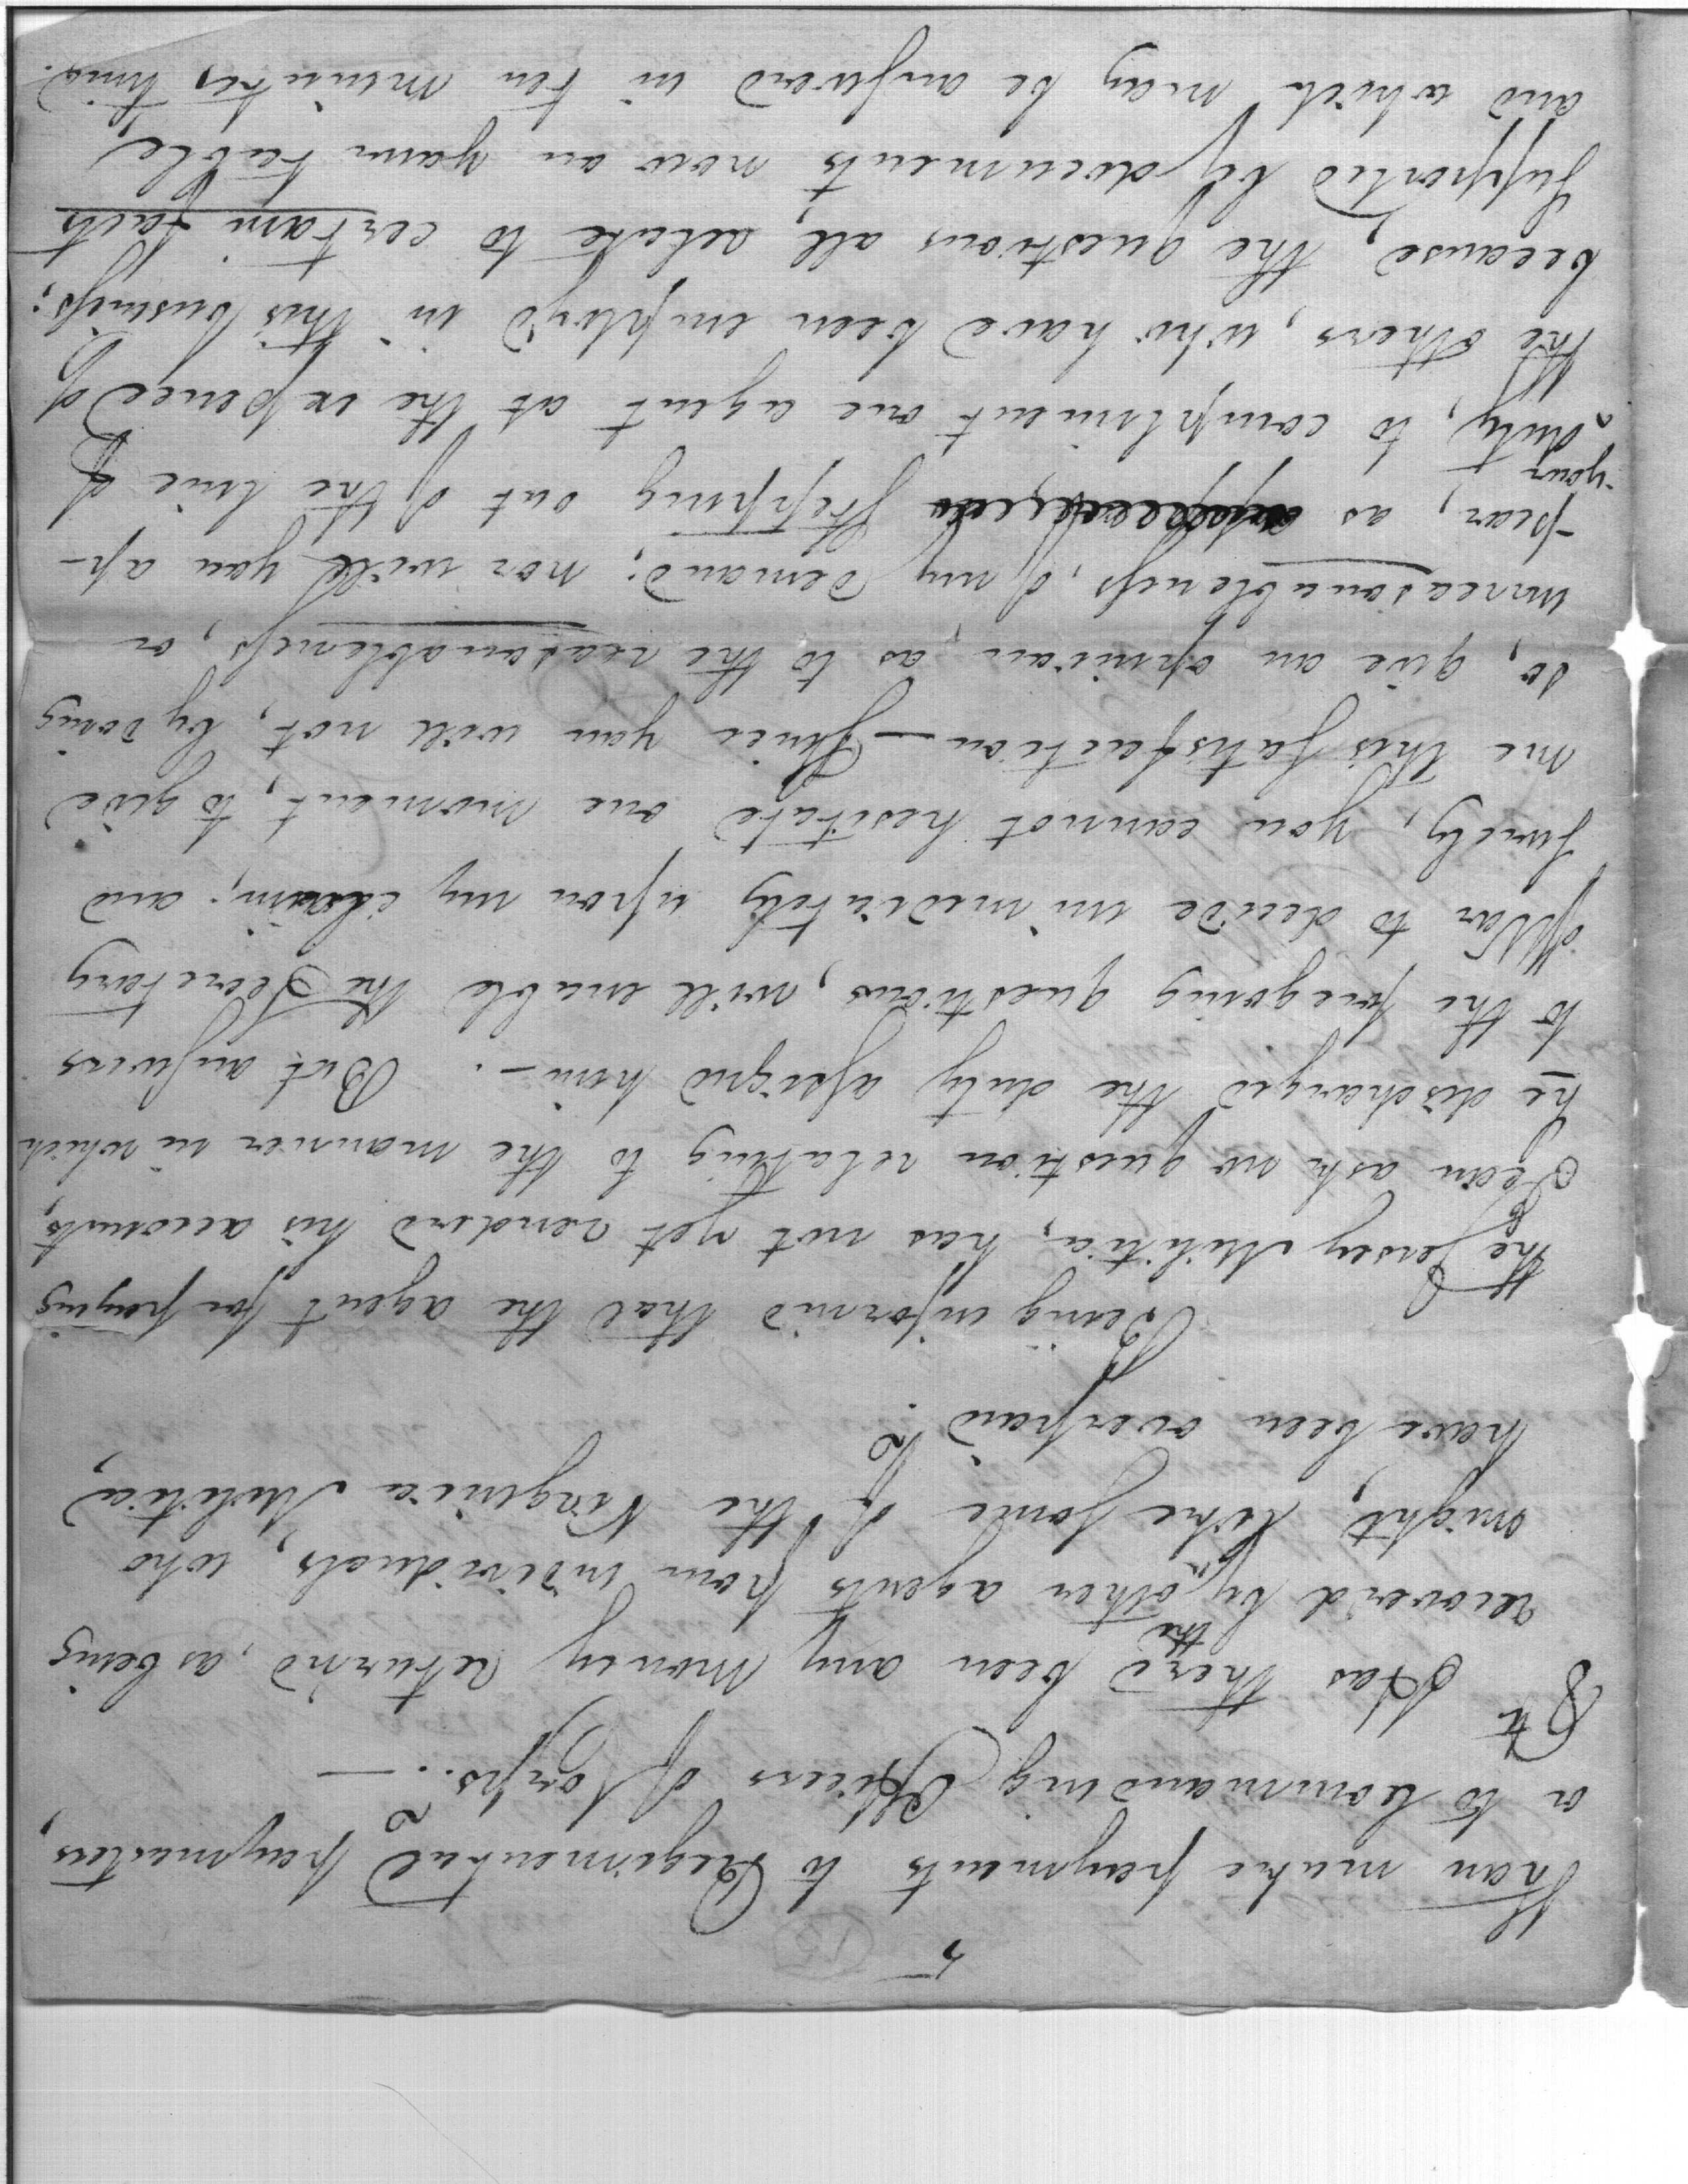 5
(15)
than make payments to Regimental paymasters,
or to Commanding Officers of Corps? . —
8th Has there been any money returnd, as being
the
recoverd by ^ other agents from individuals, who
might, like some of the Virginia Militia,
have been overpaid?
Being informd that the agent for paying
the Jersey Militia, has not yet renderd his accounts,
I can ask no question relating to the manner in which
he discharged the duty assignd him — . But answers
to the foregoing questions, will enable the Secretary
of War to decide immediately upon my claim; and
surely, you cannot hesitate one moment, to give
me this satisfaction — Since you will not, by doing
so, give an opinion as to the reasonableness, or
unreasonableness, of my demand; nor will you ap-
pear, as stepping out of the line of
your
^ duty, to compliment one agent at the expence of
the others, who have been employd in this business;
because, the questions all, relate to certain facts
supported by documents, now on your table,
and which may be answerd in ten minutes time.